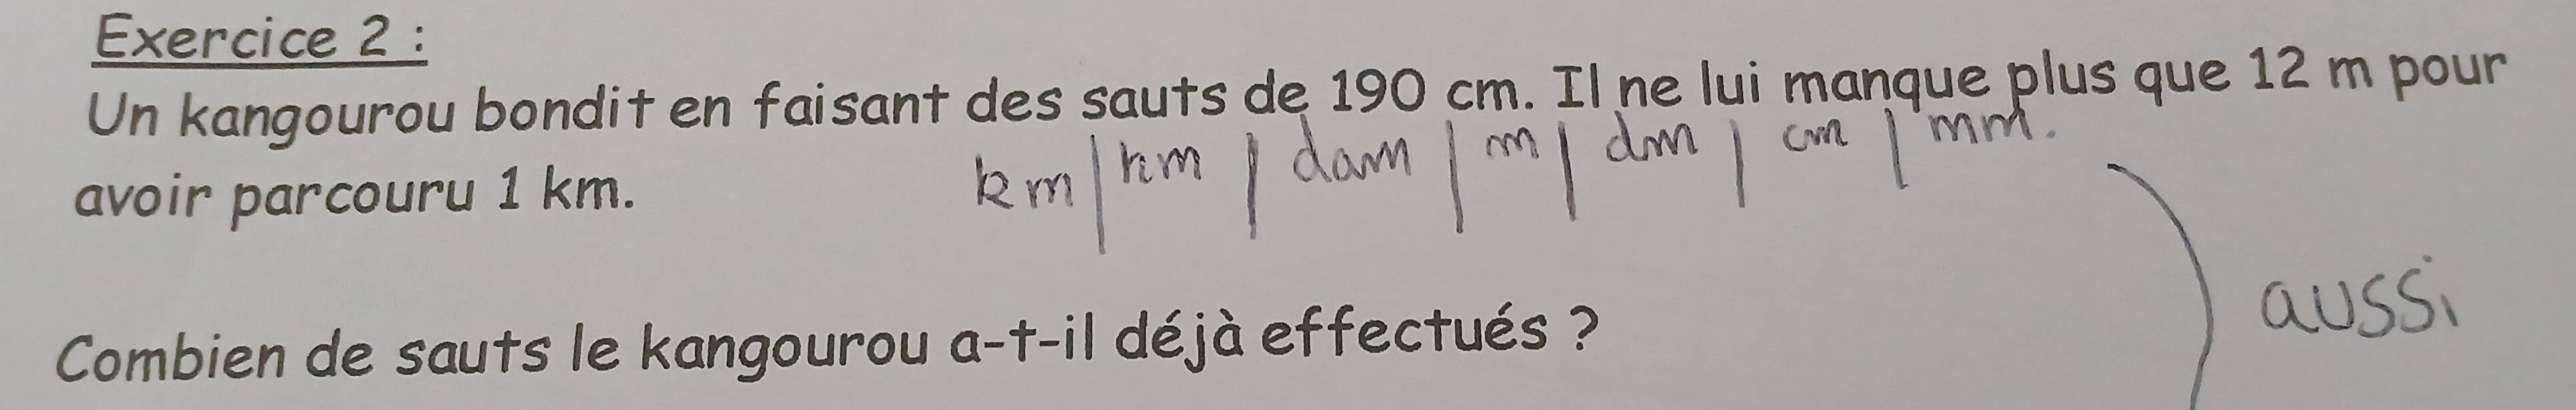 Exercice 2 :
Un kangourou bondit en faisant des sauts de 190 cm. Il ne lui manque plus que 12 m pour
avoir parcouru 1 km.
km | hm | dam | m | dm | cm | mm.
aussi
Combien de sauts le kangourou a-t-il déjà effectués ?